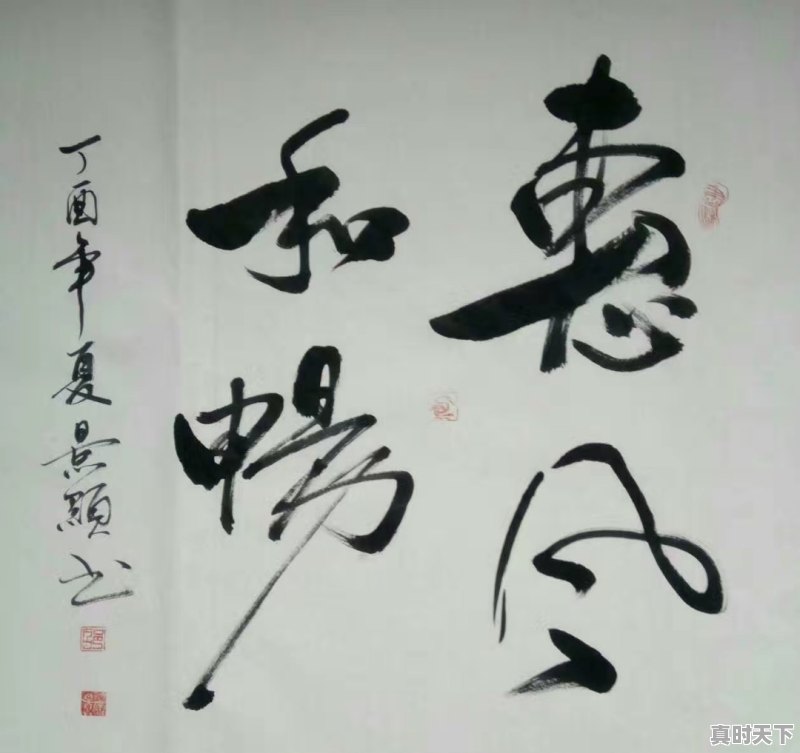 惠風
和暢
丁酉年夏景顯书
真时天下